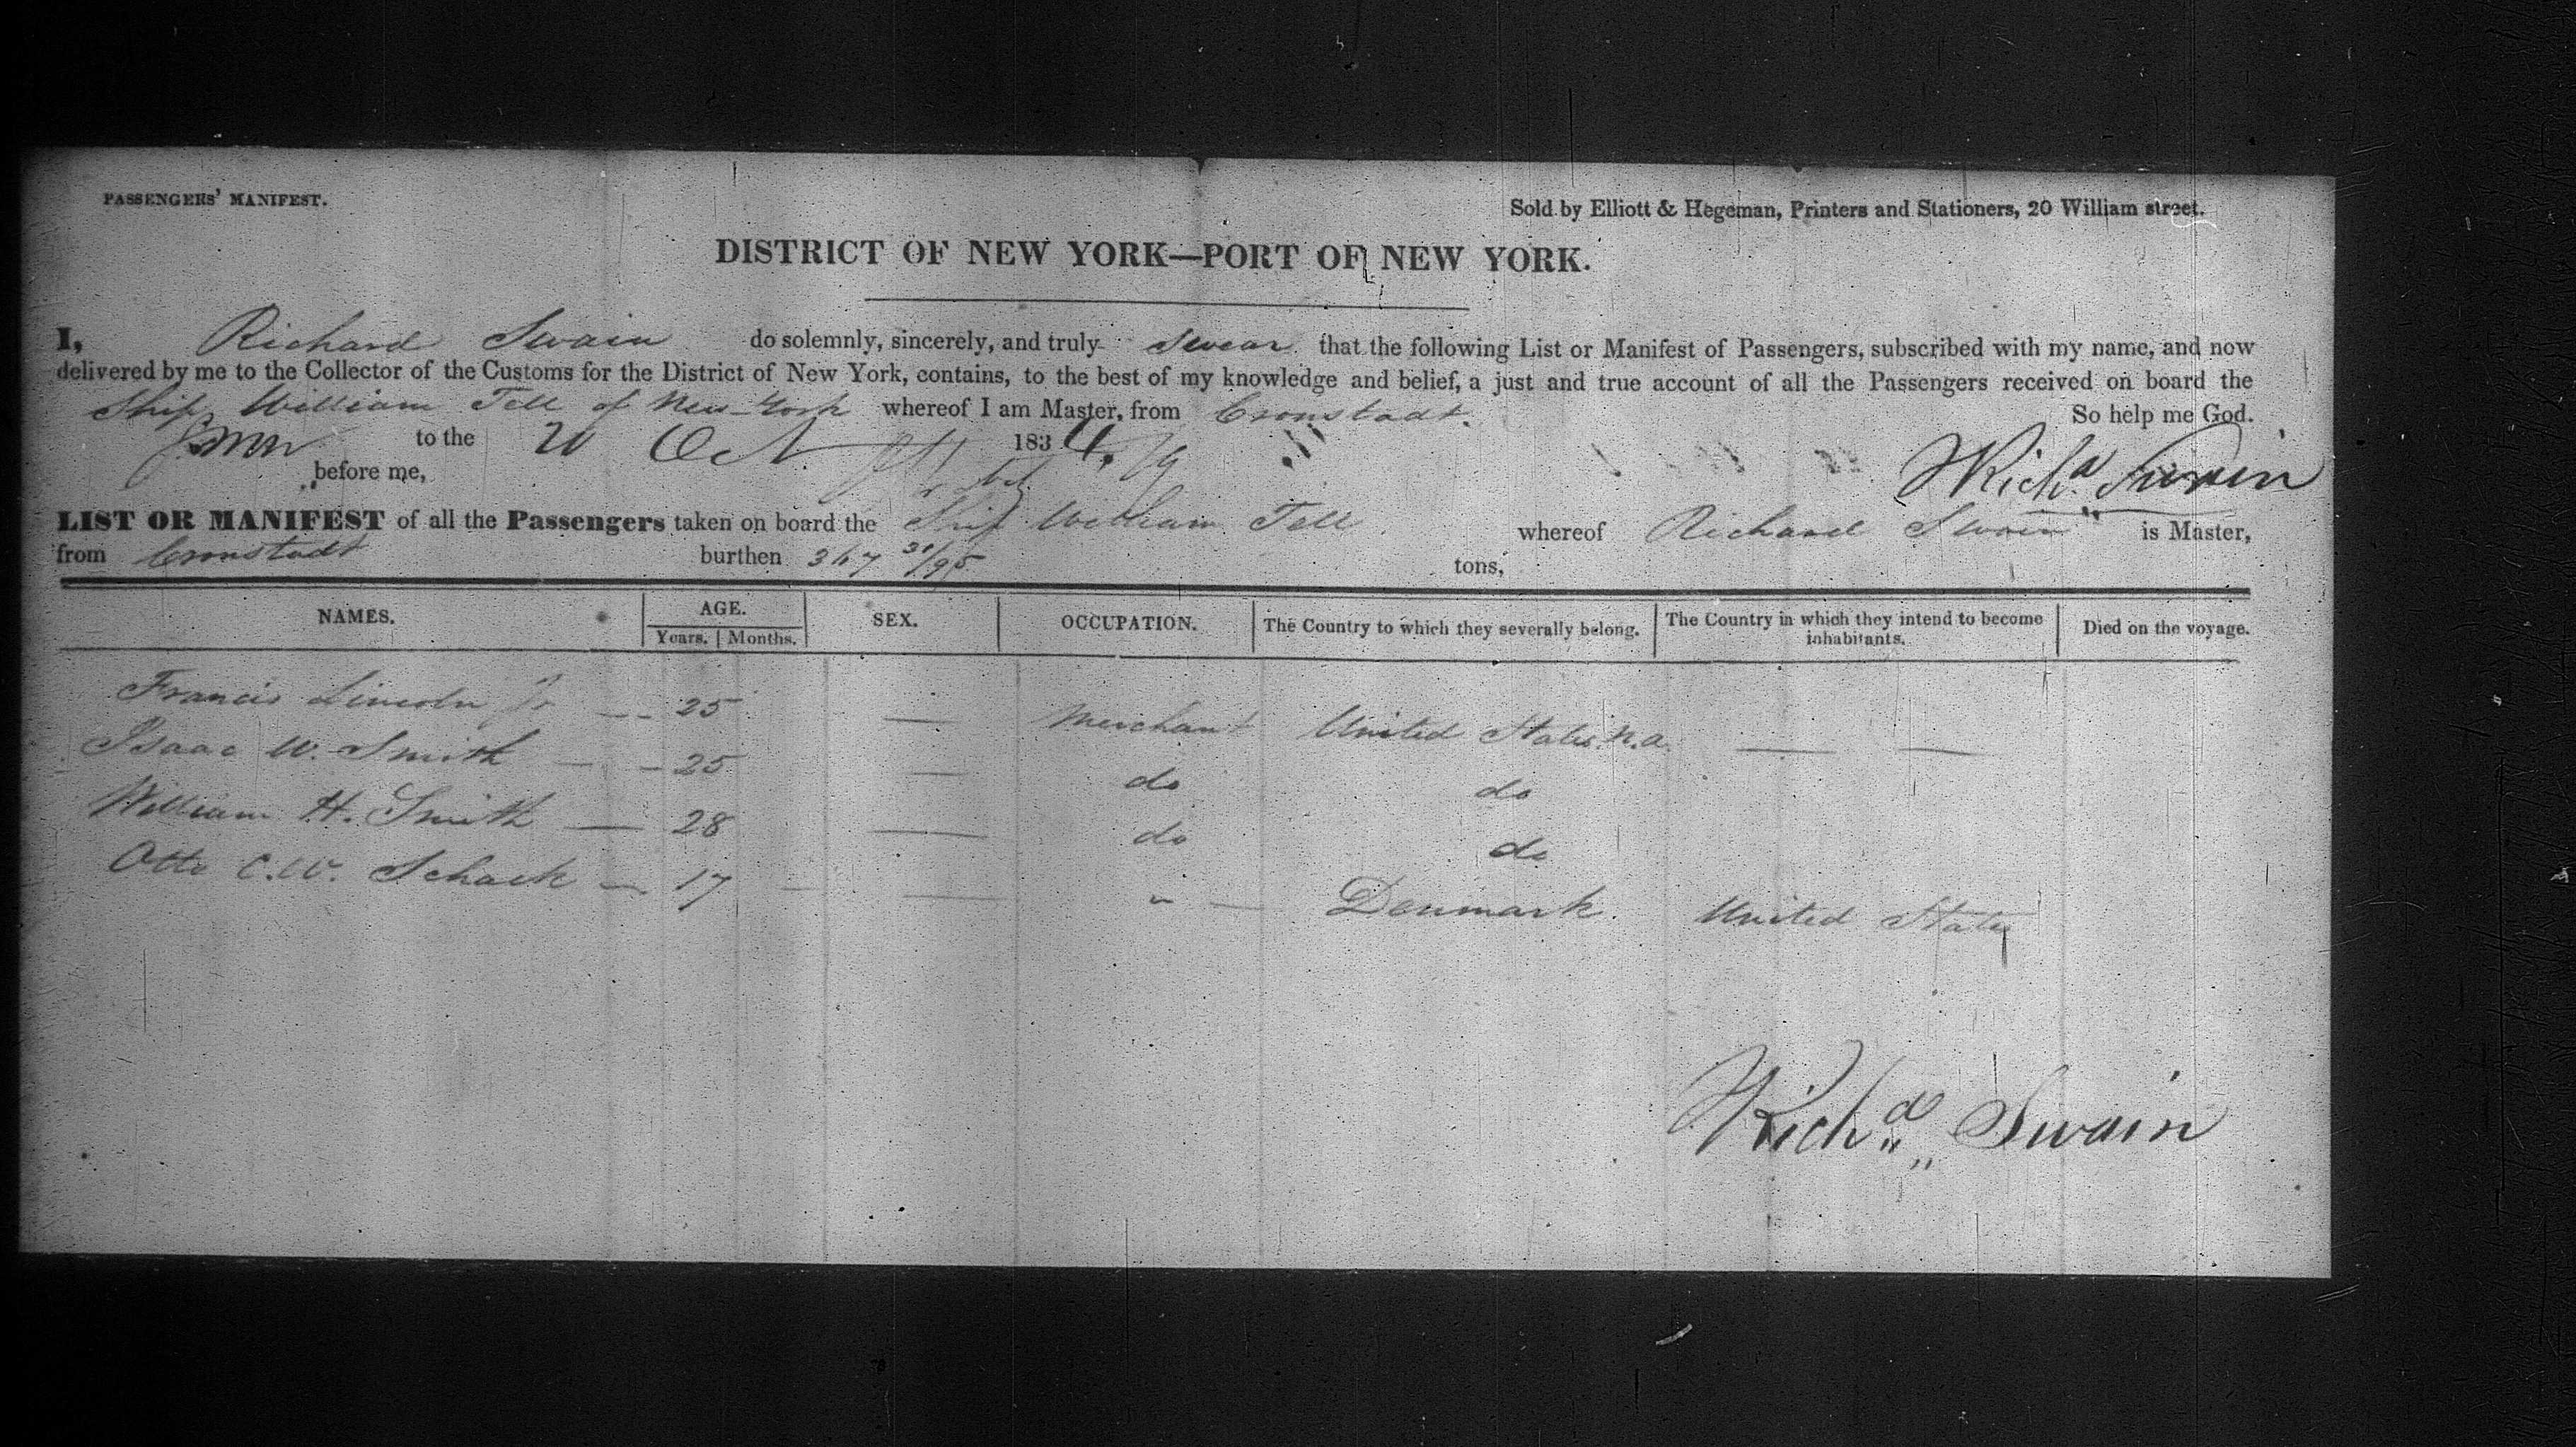 PASSENGERS' MANIFEST.
Sold by Elliott & Hegeman, Printers and Stationers, 20 William street.
DISTRICT OF NEW YORK—PORT OF NEW YORK.
I, Richard Swain do solemnly, sincerely, and truly swear that the following List or Manifest of Passengers, subscribed with my name, and now
delivered by me to the Collector of the Customs for the District of New York, contains, to the best of my knowledge and belief, a just and true account of all the Passengers received on board the
Ship William Tell of New-York whereof I am Master, from Cronstadt. So help me God.
to the Oct 1834.
before me,
Richd Swain
LIST OR MANIFEST of all the Passengers taken on board the Ship William Tell whereof Richard Swain is Master,
from Cronstadt burthen 367 31/95 tons,
NAMES. AGE. SEX. OCCUPATION. The Country to which they severally belong. The Country in which they intend to become inhabitants. Died on the voyage.
Years. Months.
Francis Lincoln Jr — 25 — Merchant United States. N.a. — —
Isaac W. Smith — 25 — do do
William H. Smith — 28 — do do
Otto C.W. Schack — 17 — — " — Denmark. United States
Richd Swain